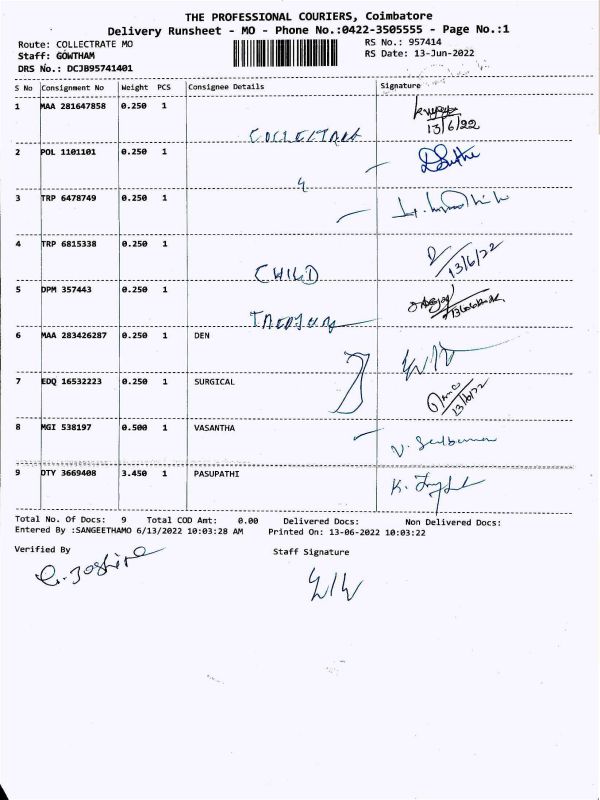 THE PROFESSIONAL COURIERS, Coimbatore
Delivery Runsheet - MO - Phone No.:0422-3505555 - Page No.:1
Route: COLLECTRATE MO
RS No.: 957414
Staff: GOWTHAM
RS Date: 13-Jun-2022
DRS No.: DCJB95741401
S No Consignment No Weight PCS Consignee Details Signature
1 MAA 281647858 0.250 1
13/6/22
2 POL 1101101 0.250 1
3 TRP 6478749 0.250 1
4 TRP 6815338 0.250 1
13/6/22
CHILD
5 DPM 357443 0.250 1
6 MAA 283426287 0.250 1 DEN
7 EDQ 16532223 0.250 1 SURGICAL
13/6/22
8 MGI 538197 0.500 1 VASANTHA
9 DTY 3669408 3.450 1 PASUPATHI
Total No. Of Docs: 9 Total COD Amt: 0.00 Delivered Docs: Non Delivered Docs:
Entered By :SANGEETHAMO 6/13/2022 10:03:28 AM Printed On: 13-06-2022 10:03:22
Verified By
Staff Signature